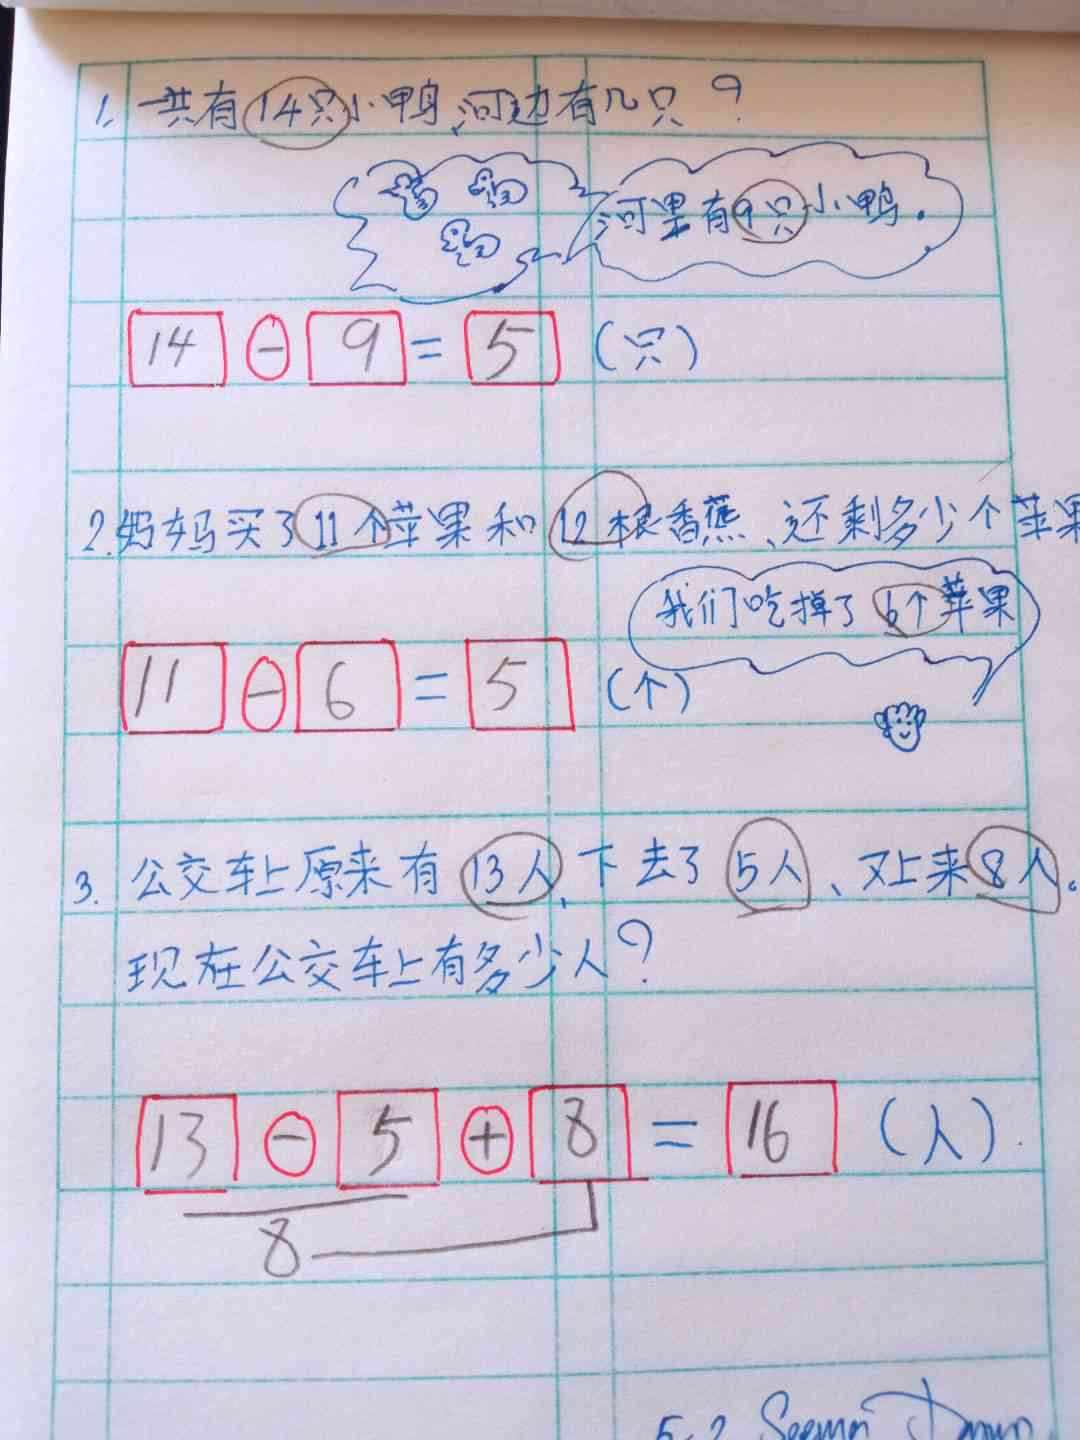 1. 一共有14只小鸭,河边有几只?
河里有9只小鸭.
14 - 9 = 5 (只)
2.妈妈买了11个苹果和12根香蕉、还剩多少个苹果
我们吃掉了6个苹果
11 - 6 = 5 (个)
3. 公交车上原来有13人、下去了5人、又上来8人。
现在公交车上有多少人?
13 - 5 + 8 = 16 (人).
8
5.2